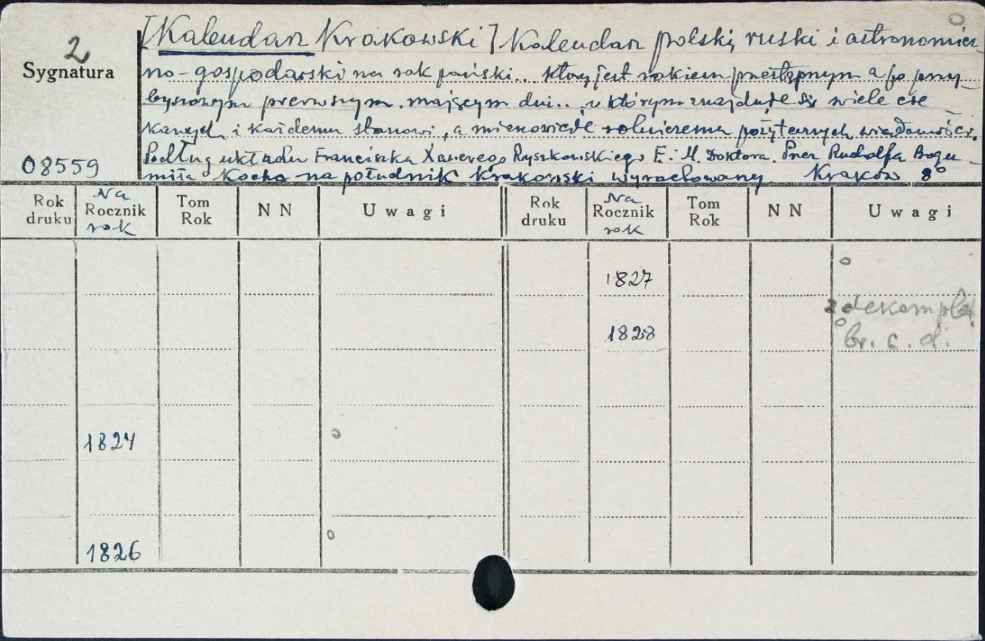 2
Sygnatura
08559
[Kalendarz Krakowski] Kalendarz polski, ruski i astronomicz-
no-gospodarski na rok pański.. który jest rokiem przestępnym a po przy
byszowym pierwszym, mającym dni.. w którym znajduje się wiele cie
kawych i każdemu stanowi, a mianowicie rolniczemu pożytecznych wiadomości.
Podług układu Franciszka Xawerego Ryszkowskiego F. i M. Doktora. Przez Rudolfa Bogu-
miła Kocha na południk Krakowski wyrachowany Kraków 8°
Rok druku Na Rocznik rok Tom Rok NN Uwagi Rok druku Na Rocznik rok Tom Rok NN Uwagi
1827
zdekompl.
1828 br. c. d.
1824
1826